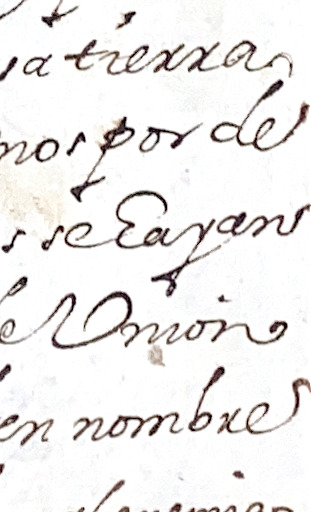 a tierra
nos por de
s se Eayan
Union
en nombre